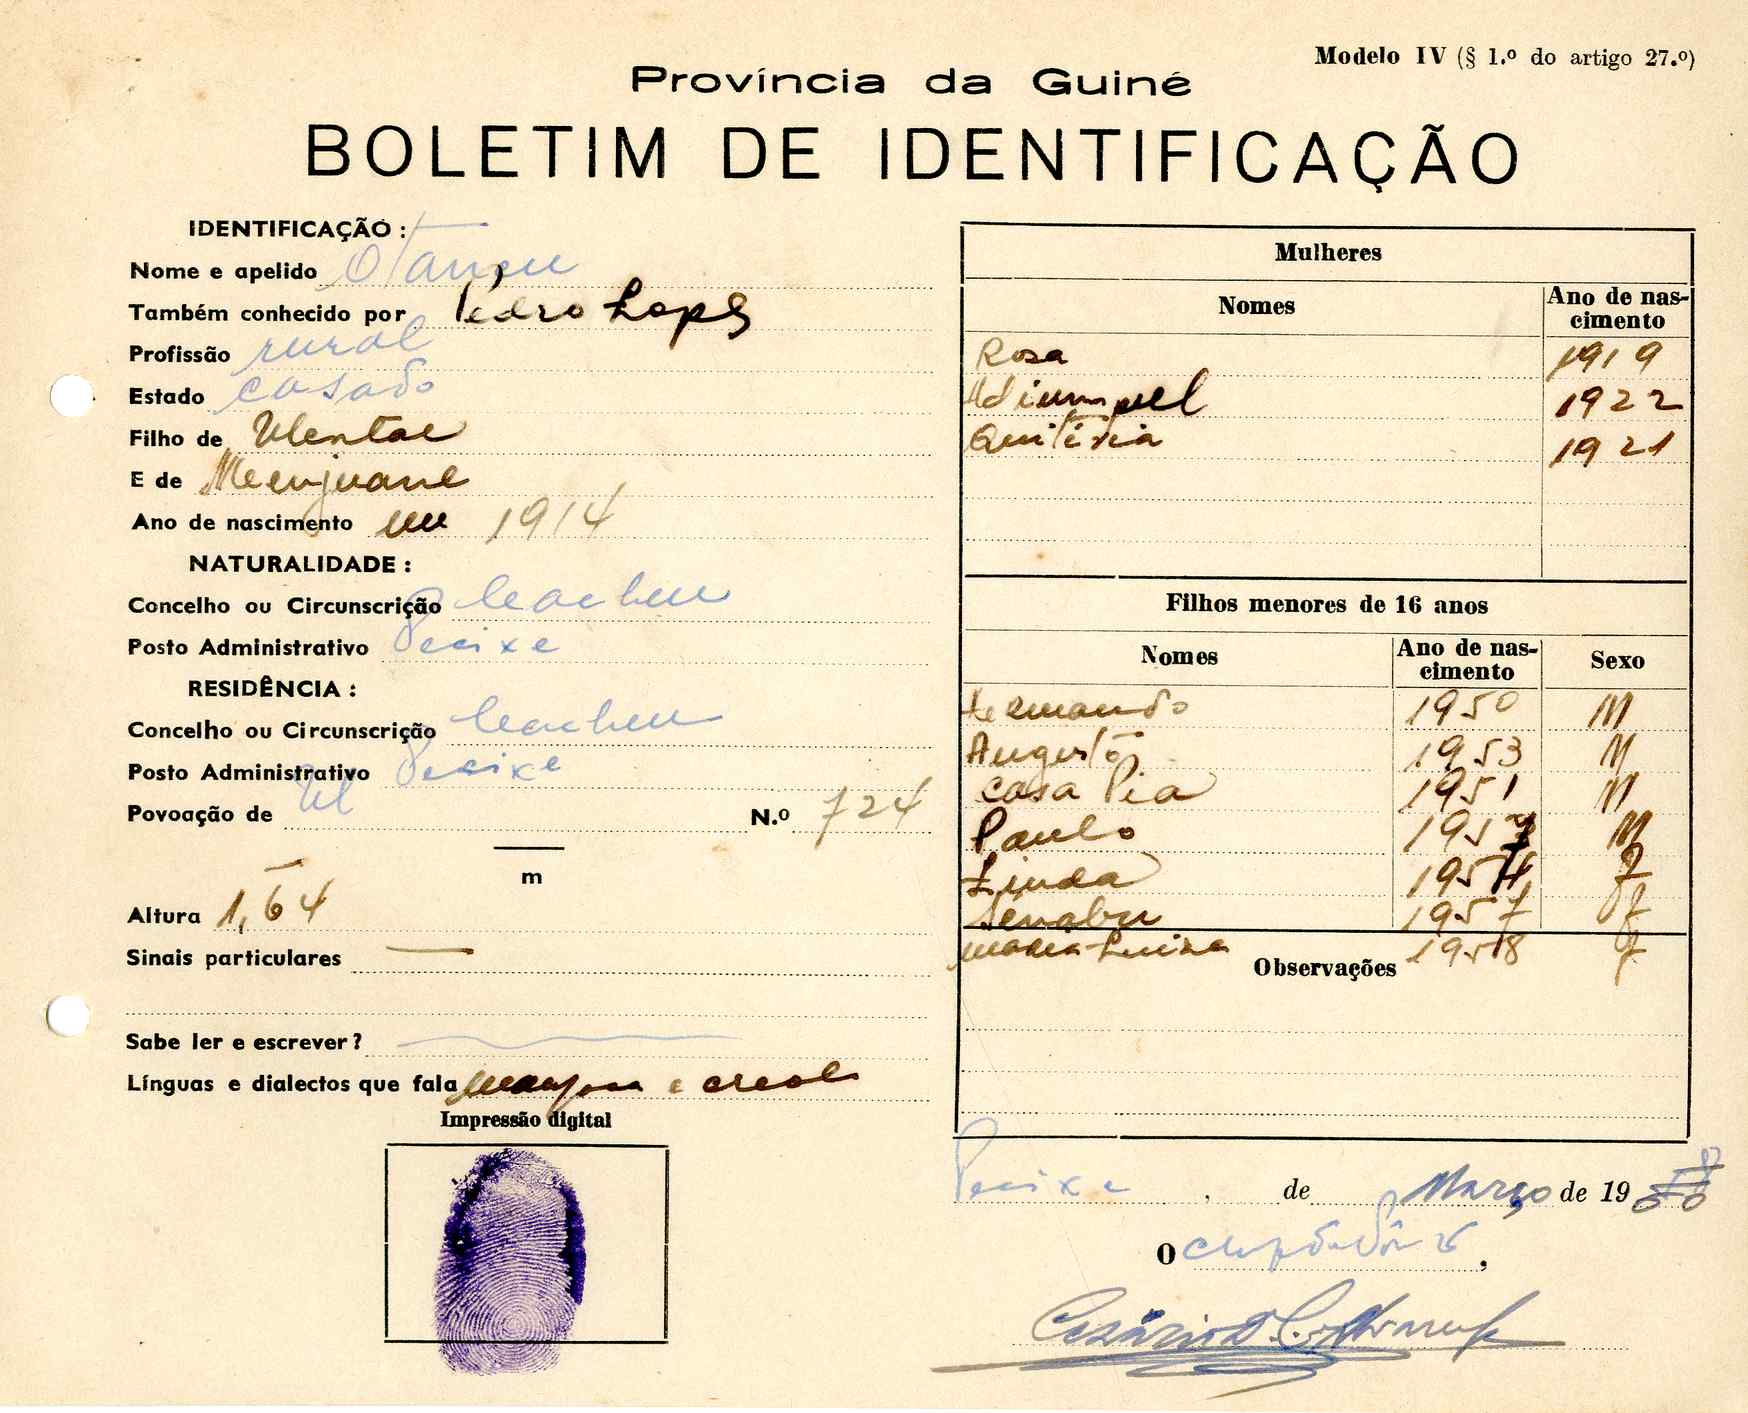 Modelo IV (§ 1.º do artigo 27.º)
Província da Guiné
BOLETIM DE IDENTIFICAÇÃO
IDENTIFICAÇÃO :
Nome e apelido
Também conhecido por Pedro Lopes
Profissão rural
Estado casado
Filho de
E de
Ano de nascimento em 1914
NATURALIDADE :
Concelho ou Circunscrição Cacheu
Posto Administrativo Pecixe
RESIDÊNCIA :
Concelho ou Circunscrição Cacheu
Posto Administrativo Pecixe
Povoação de N.º 724
m
Altura 1,64
Sinais particulares —
Sabe ler e escrever?
Línguas e dialectos que fala e
Impressão digital
Mulheres
Nomes Ano de nas-
cimento
Rosa 1919
1922
Quitéria 1921
Filhos menores de 16 anos
Nomes Ano de nas-
cimento Sexo
1950 M
Augusto 1953 M
Casa Pia 1951 M
Paulo M
Linda f
1957 f
Maria Luiza 1958 f
Observações
Pecixe, de Março de 19
O